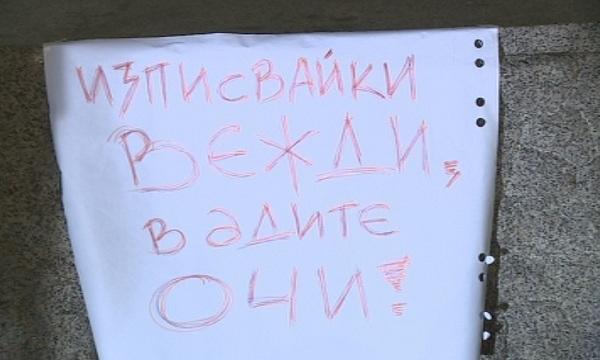 ИЗПИСВАЙКИ
ВЕЖДИ,
ВАДИТЕ
ОЧИ!